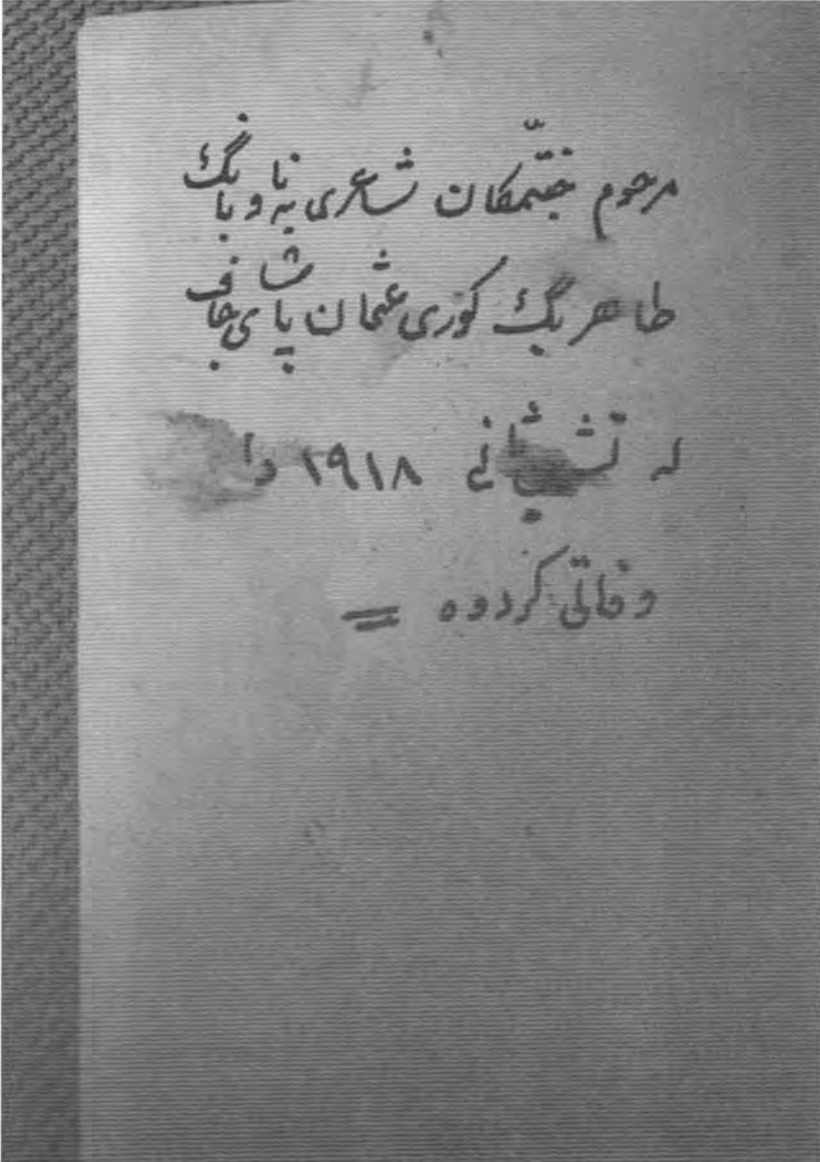 مرحوم جنّتمکان شاعری به ناو بانگ
طاهر بگ کوری عثمان پاشای جاف
له تشرینی ثانی ١٩١٨ دا
وفاتی کردوه =